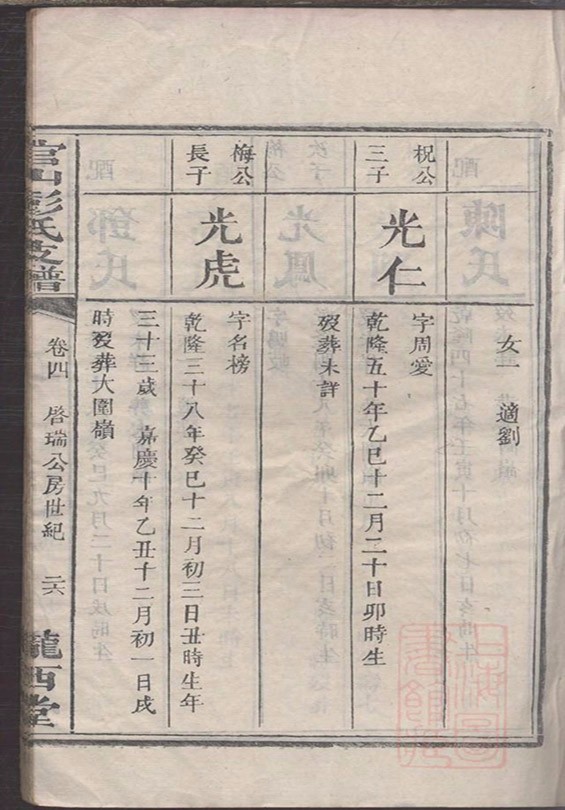 女一 適劉
祝公
三子
光仁
字周愛
乾隆五十年乙巳十二月二十日卯時生
歿葬未詳
梅公
長子
光虎
字名榜
乾隆三十八年癸巳十二月初三日丑時生年
三十三歲 嘉慶十年乙丑十二月初一日戌
時歿葬大圍嶺
官山彭氏支譜
卷四 啓瑞公房世紀 二六
隴西堂